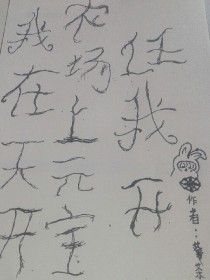 我在天开
农场上元宝
任我开
作者：